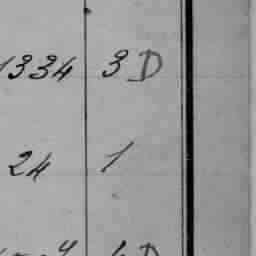 1334 3 D
24 1